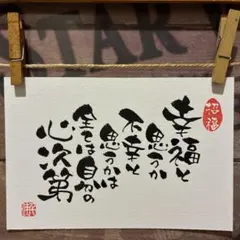 招福
幸福と
思うか
不幸と
思うかは
全ては自分の
心次第